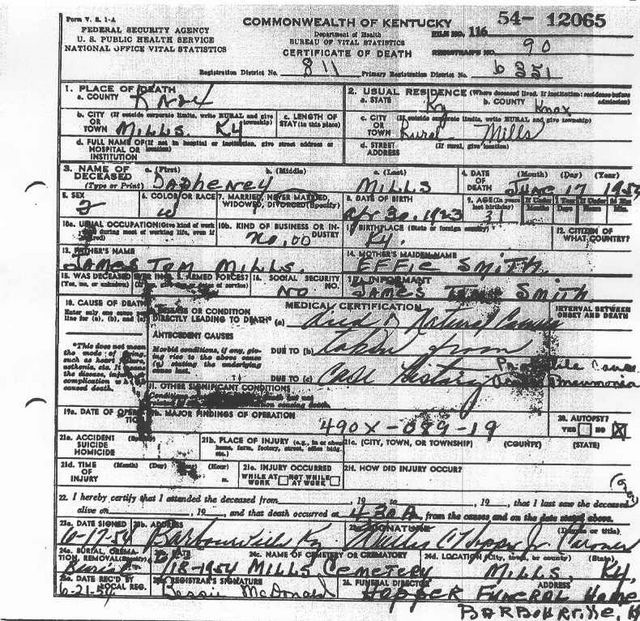 Form V. S. 1-A
COMMONWEALTH OF KENTUCKY
54- 12065
FEDERAL SECURITY AGENCY
Department of Health
FILE NO. 116
U. S. PUBLIC HEALTH SERVICE
BUREAU OF VITAL STATISTICS
NATIONAL OFFICE VITAL STATISTICS
CERTIFICATE OF DEATH
REGISTRAR'S NO. 90
Registration District No. 811 Primary Registration District No. 6351
1. PLACE OF DEATH
a. COUNTY Knox
2. USUAL RESIDENCE (Where deceased lived. If institution: residence before admission)
a. STATE Ky b. COUNTY Knox
b. CITY (If outside corporate limits, write RURAL and give township) OR TOWN MILLS. Ky
c. LENGTH OF STAY (in this place)
c. CITY (If outside corporate limits, write RURAL and give township) OR TOWN Rural Mills
d. FULL NAME OF (If not in hospital or institution, give street address or location) HOSPITAL OR INSTITUTION
d. STREET ADDRESS (If rural, give location)
3. NAME OF DECEASED (Type or Print)
a. (First) b. (Middle) c. (Last)
MILLS
4. DATE OF DEATH (Month) (Day) (Year)
June 17
5. SEX
6. COLOR OR RACE W
7. MARRIED, NEVER MARRIED, WIDOWED, DIVORCED (Specify)
8. DATE OF BIRTH Apr 30, 1923
9. AGE (In years last birthday) 31
10a. USUAL OCCUPATION (Give kind of work during most of working life, even if retired)
10b. KIND OF BUSINESS OR INDUSTRY
11. BIRTHPLACE (State or foreign country) Ky.
12. CITIZEN OF WHAT COUNTRY?
13. FATHER'S NAME
JAMES TOM MILLS
14. MOTHER'S MAIDEN NAME
EFFIE SMITH
15. WAS DECEASED EVER IN U.S. ARMED FORCES?
16. SOCIAL SECURITY NO.
NO
17. INFORMANT
JAMES SMITH
18. CAUSE OF DEATH
Enter only one cause per line for (a), (b), and (c)
MEDICAL CERTIFICATION
INTERVAL BETWEEN ONSET AND DEATH
I. DISEASE OR CONDITION DIRECTLY LEADING TO DEATH* (a) Died of Natural Causes
ANTECEDENT CAUSES
Morbid conditions, if any, giving rise to the above cause (a) stating the underlying cause last.
DUE TO (b) taken from
DUE TO (c) Case history
Probable Cause
Pneumonia
*This does not mean the mode of dying, such as heart failure, asthenia, etc. It means the disease, injury, or complication which caused death.
II. OTHER SIGNIFICANT CONDITIONS
19a. DATE OF OPERATION
19b. MAJOR FINDINGS OF OPERATION
490X-089-19
20. AUTOPSY?
YES NO X
21a. ACCIDENT SUICIDE HOMICIDE
21b. PLACE OF INJURY (e.g., in or about home, farm, factory, street, office bldg., etc.)
21c. (CITY, TOWN, OR TOWNSHIP) (COUNTY) (STATE)
21d. TIME OF INJURY (Month) (Day) (Year) (Hour)
21e. INJURY OCCURRED WHILE AT WORK NOT WHILE AT WORK
21f. HOW DID INJURY OCCUR?
22. I hereby certify that I attended the deceased from , 19 , to , 19 , that I last saw the deceased
alive on , 19 , and that death occurred at 4:30A from the causes and on the date stated above.
23a. DATE SIGNED 6-17-54
23b. ADDRESS Barbourville Ky
23c. SIGNATURE (Degree or title)
Coroner
24a. BURIAL, CREMATION, REMOVAL (Specify) Burial
24b. DATE 18-1954
24c. NAME OF CEMETERY OR CREMATORY MILLS CEMETERY
24d. LOCATION (City, town, or county) (State) MILLS, Ky.
25a. DATE REC'D BY LOCAL REG. 6-21-54
25b. REGISTRAR'S SIGNATURE Bessie McDonald
26. FUNERAL DIRECTOR ADDRESS
HOPPER FUNERAL HOME
BARBOURVILLE,